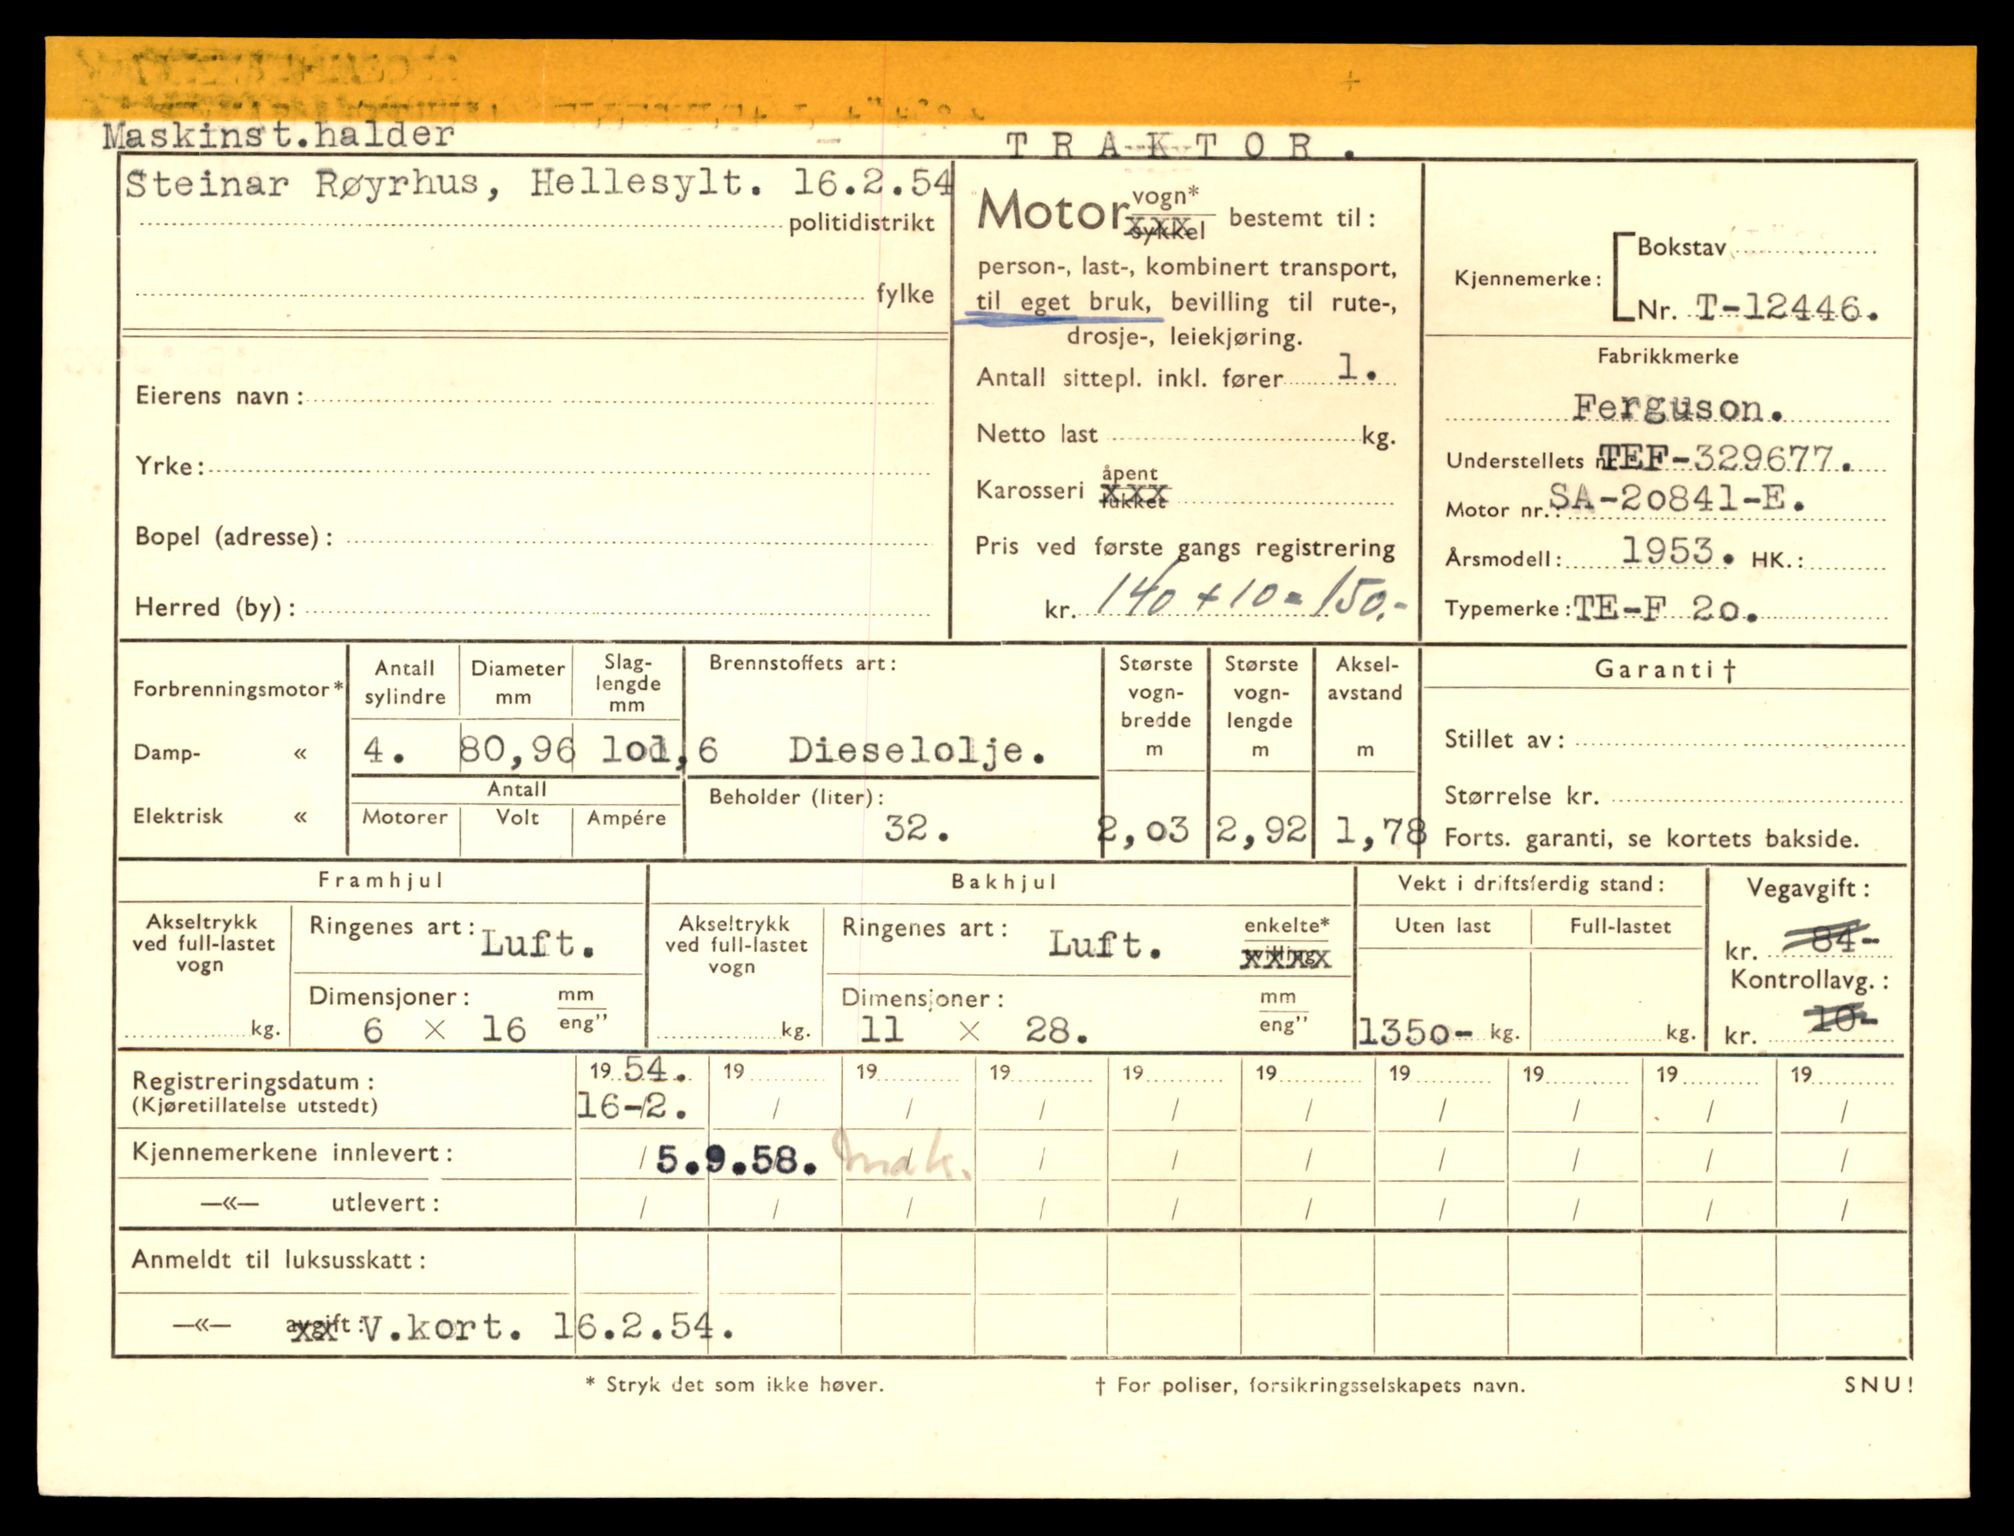 Maskinst.halder
T R A K T O R .
Steinar Røyrhus, Hellesylt. 16.2.54
politidistrikt
fylke
Eierens navn:
Yrke:
Bopel (adresse):
Herred (by):
Motor vogn* sykkel bestemt til:
person-, last-, kombinert transport,
til eget bruk, bevilling til rute-,
drosje-, leiekjøring.
Antall sittepl. inkl. fører 1.
Netto last kg.
Karosseri åpent lukket
Pris ved første gangs registrering
kr. 140 + 10 = 150.-
Kjennemerke: Bokstav
Nr. T-12446.
Fabrikkmerke
Ferguson.
Understellets nr. TEF-329677.
Motor nr.: SA-20841-E.
Årsmodell: 1953. HK.:
Typemerke: TE-F 20.
Forbrenningsmotor*
Damp- «
Elektrisk «
Antall sylindre
4.
Diameter mm
80,96
Slag-lengde mm
101,6
Antall
Motorer Volt Ampére
Brennstoffets art:
Dieselolje.
Beholder (liter):
32.
Største vogn-bredde m
2,03
Største vogn-lengde m
2,92
Aksel-avstand m
1,78
Garanti †
Stillet av:
Størrelse kr.
Forts. garanti, se kortets bakside.
Framhjul
Akseltrykk ved full-lastet vogn
kg.
Ringenes art: Luft.
Dimensjoner: mm eng”
6 × 16
Bakhjul
Akseltrykk ved full-lastet vogn
kg.
Ringenes art: Luft. enkelte* tvilling
Dimensjoner: mm eng”
11 × 28.
Vekt i driftsferdig stand:
Uten last Full-lastet
1350- kg. kg.
Vegavgift:
kr. 84-
Kontrollavg.:
kr. 10-
Registreringsdatum: 19 54. 19 19 19 19 19 19 19 19 19
(Kjøretillatelse utstedt) 16-2. / / / / / / / / /
Kjennemerkene innlevert: / 5.9.58. mak. / / / / / / /
—«— utlevert: / / / / / / / / / /
Anmeldt til luksusskatt:
—«— avgift: V.kort. 16.2.54.
* Stryk det som ikke høver. † For poliser, forsikringsselskapets navn. SNU!